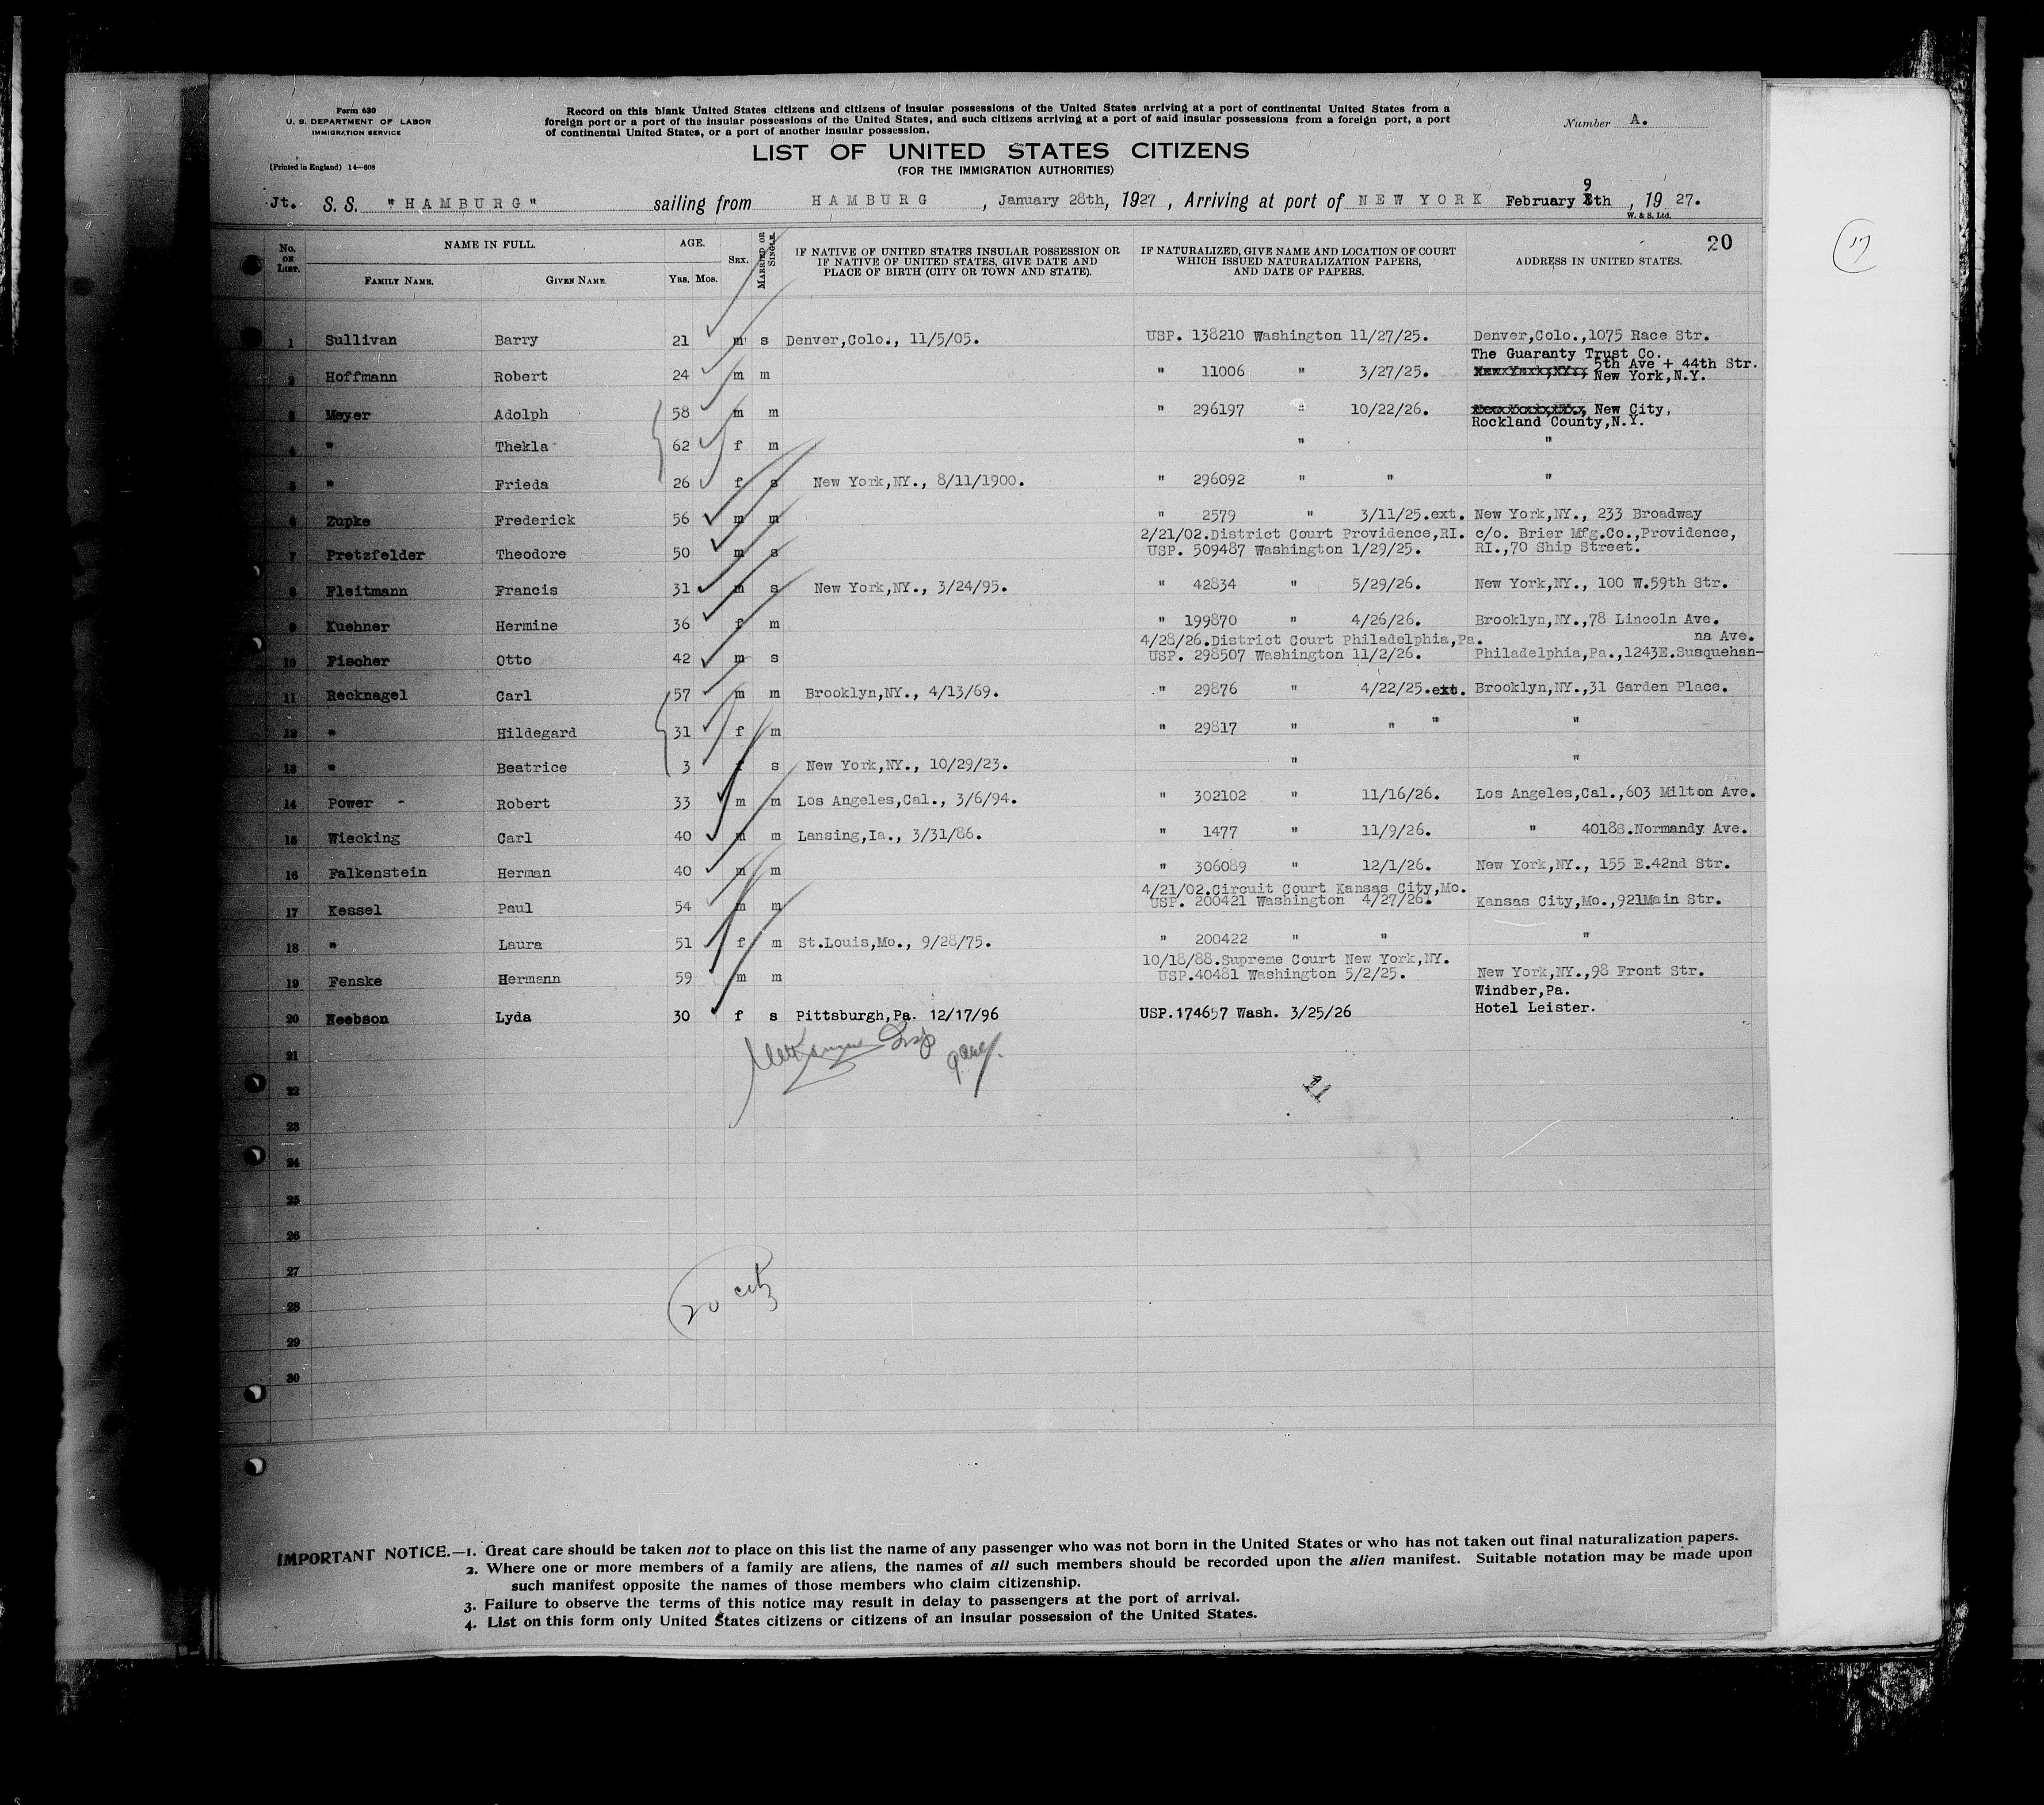 Form 630
U. S. DEPARTMENT OF LABOR
IMMIGRATION SERVICE
(Printed in England) 14—608
Record on this blank United States citizens and citizens of insular possessions of the United States arriving at a port of continental United States from a
foreign port or a port of the insular possessions of the United States, and such citizens arriving at a port of said insular possessions from a foreign port, a port
of continental United States, or a port of another insular possession.
Number A.
LIST OF UNITED STATES CITIZENS
(FOR THE IMMIGRATION AUTHORITIES)
Jt. S. S. "HAMBURG" sailing from HAMBURG, January 28th, 1927, Arriving at port of NEW YORK February 9th, 1927.
W. & S. Ltd.
20
17
No. ON LIST. NAME IN FULL. AGE. SEX. MARRIED OR SINGLE. IF NATIVE OF UNITED STATES INSULAR POSSESSION OR IF NATIVE OF UNITED STATES, GIVE DATE AND PLACE OF BIRTH (CITY OR TOWN AND STATE). IF NATURALIZED, GIVE NAME AND LOCATION OF COURT WHICH ISSUED NATURALIZATION PAPERS, AND DATE OF PAPERS. ADDRESS IN UNITED STATES.
FAMILY NAME. GIVEN NAME. YRS. MOS.
1 Sullivan Barry 21 m s Denver,Colo., 11/5/05. USP. 138210 Washington 11/27/25. Denver,Colo.,1075 Race Str.
The Guaranty Trust Co.
2 Hoffmann Robert 24 m m " 11006 " 3/27/25. 5th Ave + 44th Str.
New York,N.Y.
3 Meyer Adolph 58 m m " 296197 " 10/22/26. New City,
Rockland County,N.Y.
4 " Thekla 62 f m " "
5 " Frieda 26 f s New York,NY., 8/11/1900. " 296092 " " "
6 Zupke Frederick 56 m m " 2579 " 3/11/25.ext. New York,NY., 233 Broadway
2/21/02.District Court Providence,RI. c/o. Brier Mfg.Co.,Providence,
7 Pretzfelder Theodore 50 m s USP. 509487 Washington 1/29/25. RI.,70 Ship Street.
8 Fleitmann Francis 31 m s New York,NY., 3/24/95. " 42834 " 5/29/26. New York,NY., 100 W.59th Str.
9 Kuehner Hermine 36 f m " 199870 " 4/26/26. Brooklyn,NY.,78 Lincoln Ave.
4/28/26.District Court Philadelphia,Pa. na Ave.
10 Fischer Otto 42 m s USP. 298507 Washington 11/2/26. Philadelphia,Pa.,1243E.Susquehan-
11 Recknagel Carl 57 m m Brooklyn,NY., 4/13/69. " 29876 " 4/22/25.ext. Brooklyn,NY.,31 Garden Place.
12 " Hildegard 31 f m " 29817 " " " "
13 " Beatrice 3 f s New York,NY., 10/29/23. " "
14 Power - Robert 33 m m Los Angeles,Cal., 3/6/94. " 302102 " 11/16/26. Los Angeles,Cal.,603 Milton Ave.
15 Wiecking Carl 40 m m Lansing,Ia., 3/31/86. " 1477 " 11/9/26. " 4018S.Normandy Ave.
16 Falkenstein Herman 40 m m " 306089 " 12/1/26. New York,NY., 155 E.42nd Str.
4/21/02.Circuit Court Kansas City,Mo.
17 Kessel Paul 54 m m USP. 200421 Washington 4/27/26. Kansas City,Mo.,921Main Str.
18 " Laura 51 f m St.Louis,Mo., 9/28/75. " 200422 " " "
10/18/88.Supreme Court New York,NY.
19 Fenske Hermann 59 m m USP.40481 Washington 5/2/25. New York,NY.,98 Front Str.
Windber,Pa.
20 Neebson Lyda 30 f s Pittsburgh,Pa. 12/17/96 USP.174657 Wash. 3/25/26 Hotel Leister.
21
22
11
23
24
25
26
27
20 citz
28
29
30
IMPORTANT NOTICE.—1. Great care should be taken not to place on this list the name of any passenger who was not born in the United States or who has not taken out final naturalization papers.
2. Where one or more members of a family are aliens, the names of all such members should be recorded upon the alien manifest. Suitable notation may be made upon
such manifest opposite the names of those members who claim citizenship.
3. Failure to observe the terms of this notice may result in delay to passengers at the port of arrival.
4. List on this form only United States citizens or citizens of an insular possession of the United States.